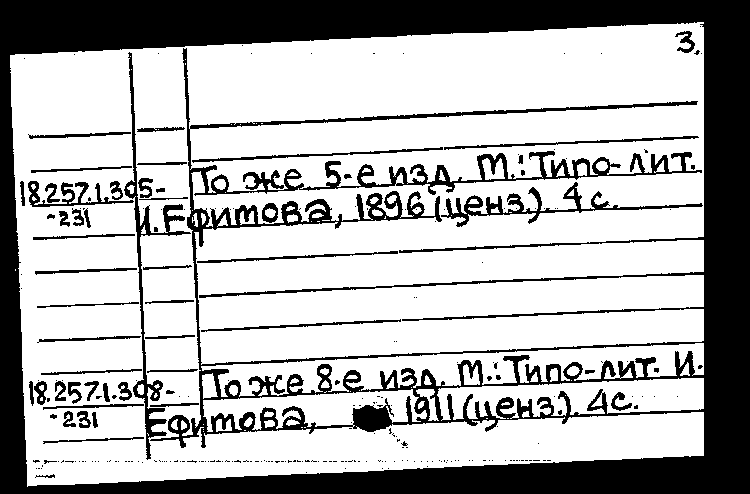 3.
18.257.1.305- То же 5-е изд. М.: Типо-лит.
-231 И. Ефитова, 1896 (ценз.). 4 с.
18.257.1.308- То же 8-е изд. М.: Типо-лит. И.
-231 Ефитова, 1911 (ценз.). 4 с.